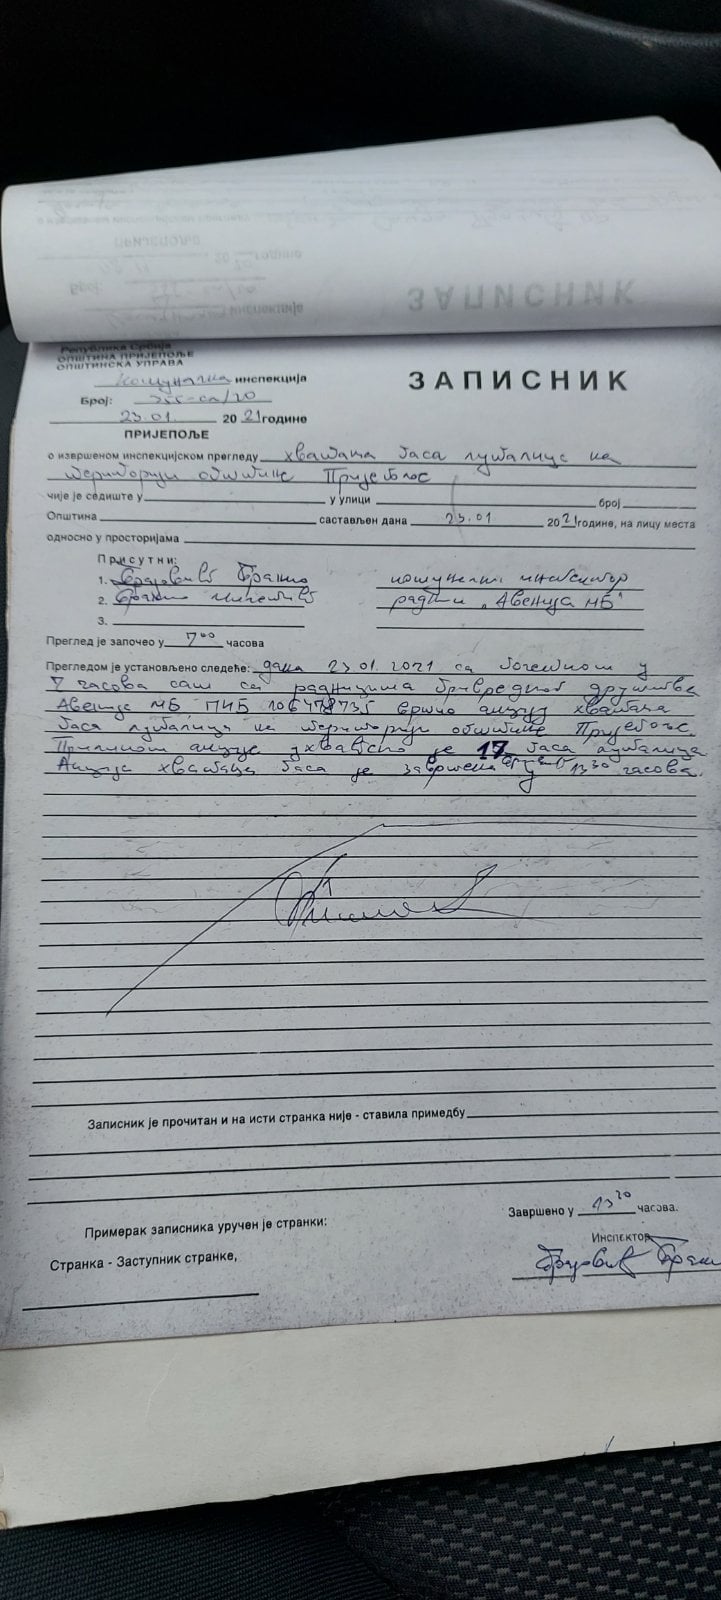 Република Србија
ОПШТИНА ПРИЈЕПОЉЕ
ОПШТИНСКА УПРАВА
Комунална инспекција
Број: 355-сл/20
23.01. 2021 године
ПРИЈЕПОЉЕ
ЗАПИСНИК
о извршеном инспекцијском прегледу хватања паса луталице на
територији општине Пријепоље
чије је седиште у у улици број
Општина састављен дана 23.01 2021 године, на лицу места
односно у просторијама
Присутни:
1. Брајовић Бранко комунални инспектор
2. радник „Авенија МБ"
3.
Преглед је започео у 7⁰⁰ часова
Прегледом је установљено следеће: дана 23.01.2021 са почетком у
7 часова сам са радницима привредног друштва
Авенија МБ ПИБ 106478735 вршио акцију хватања
паса луталица на територији општине Пријепоље.
Приликом акције ухваћено је 17 паса луталица
Акција хватања паса је завршена у 13³⁰ часова.
Записник је прочитан и на исти странка није - ставила примедбу
Завршено у 13³⁰ часова.
Примерак записника уручен је странки:
Инспектор
Странка - Заступник странке,
Брајовић Бранк